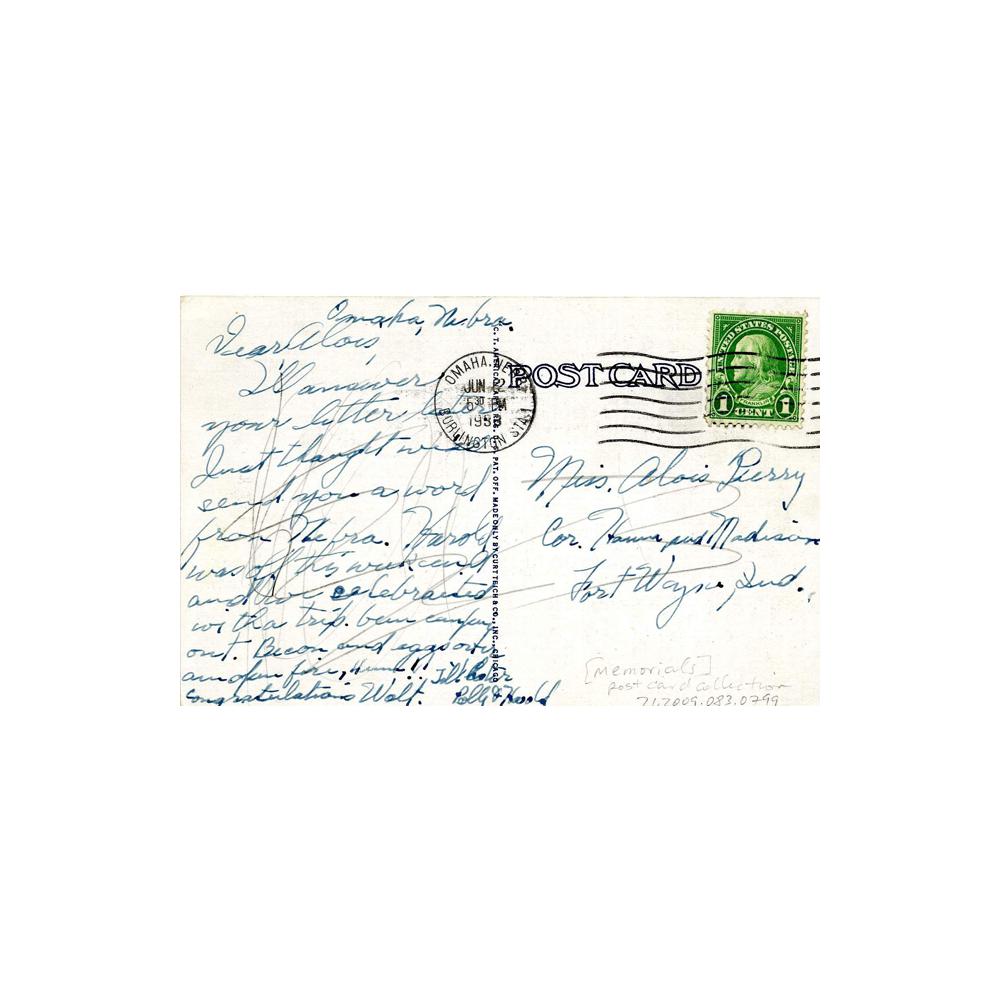 Omaha, Nebra.
Dear Alois,
I'll answer
your letter later
Just thought we'd
send you a word
from Nebra. Harold
was off this weekend
and we celebraited
with a trip. been camping
out. Bacon and eggs over
an open fire, Humm!! Till later
Congratulations Walt. Polly & Harold
C. T. AMERICAN ART
PAT. OFF. MADE ONLY BY CURT TEICH & CO., INC., CHICAGO
OMAHA, NEBR.
JUN
630 PM
193
BURLINGTON STA.
POST CARD
UNITED STATES POSTAGE
FRANKLIN
1 CENT 1
Miss. Alois Pierry
Cor. Hanna and Madison
Fort Wayne, Ind.,
[Memorials]
post card collection
71.2009.083.0799